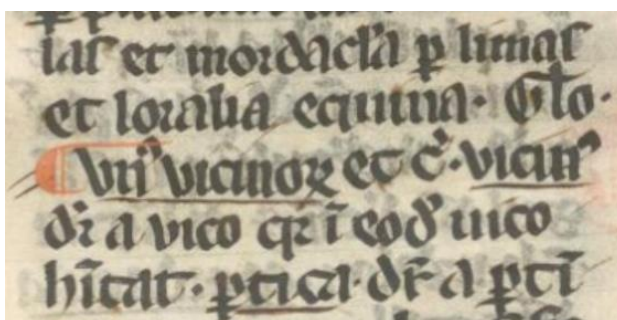 las et mordacla p lunas
et loralia equina. Glo.
Vn vicinoꝝ et c. vicin
dr a vico qr i eod uico
hitat. ptica. dr a pti